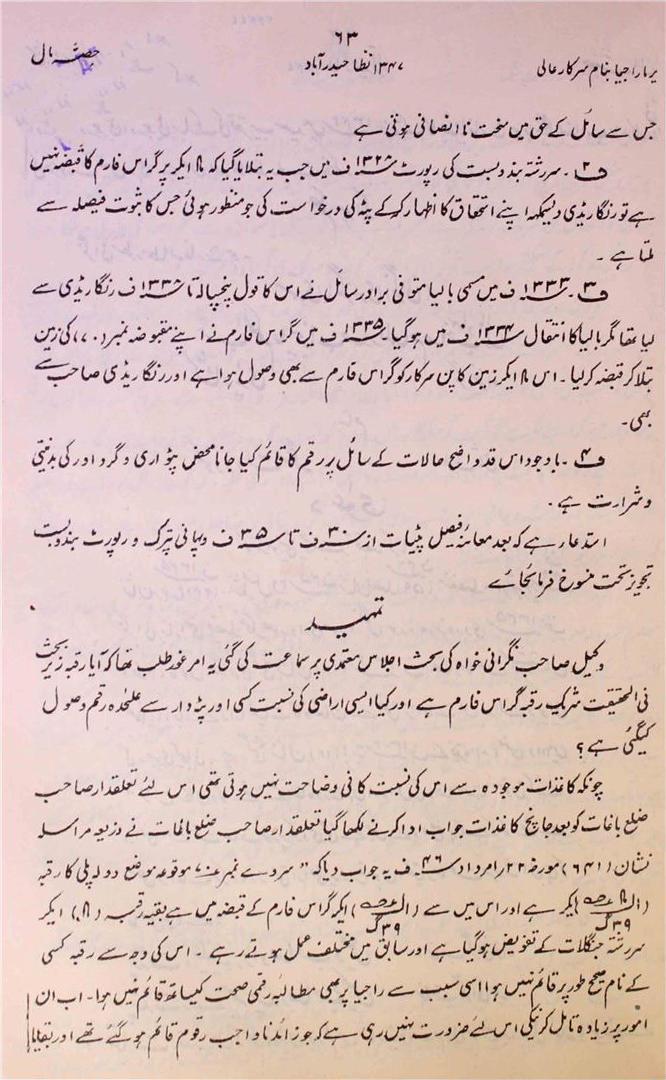 ۶۳
یرماراجیا بنام سرکارعالی ۱۳۴۷ نظا حیدرآباد حصہ مال
جس سے سائل کے حق میں سخت نا انصافی ہوتی ہے
ف۲۔ سررشتہ بندوبست کی رپورٹ ۱۳۲۸ ف میں جب یہ بتلایا گیا کہ ۸ ایکر پر گراس فارم کا قبضہ نہیں
ہے تو رنگاریڈی دیسکہہ اپنے استحقاق کا اظہار کر کے پٹہ کی درخواست کی جو منظور ہوئی جس کا ثبوت فیصلہ سے
ملتا ہے ۔
ف۳۔ ۱۳۳۳ ف میں مسمی بالیا متوفی برادر سائل نے اس کا قول پنچسالہ تا ۱۳۳۸ ف رنگاریڈی سے
لیا تھا مگر بالیا کا انتقال ۱۳۳۴ ف میں ہو گیا۔ ۱۳۳۵ ف میں گراس فارم نے اپنے مقبوضہ نمبر (۷۰) کی زمین
بتلا کر قبضہ کر لیا ۔ اس ۸ ایکر زمین کا پن سرکار کو گراس فارم سے بھی وصول ہوا ہے اور رنگاریڈی صاحب سے
بھی۔
ف۴۔ باوجود اس قدر واضح حالات کے سائل پر رقم کا قائم کیا جانا محض پٹواری و گرداور کی بدنیتی
و شرارت ہے ۔
استدعا ہے کہ بعد معائنہ فیصل پٹیات از ۳۰ ف تا ۳۵ ف و پہانی پترک و رپورٹ بندوبست
تجویز تحت منسوخ فرمائیجائے
تمہید
وکیل صاحب نگرانی خواہ کی بحث اجلاس معتمدی پر سماعت کی گئی یہ امر غور طلب تھا کہ آیا رقبہ زیر بحث
فی الحقیقت شریک رقبہ گراس فارم ہے اور کیا ایسی اراضی کی نسبت کسی اور پڑدار سے علحٰدہ رقم وصول
کیگئی ہے ؟
چونکہ کاغذات موجودہ سے اس کی نسبت کافی وضاحت نہیں ہوتی تھی اس لئے تعلقدار صاحب
ضلع باغات کو بعد جانچ کاغذات جواب ادا کرنے لکھا گیا تعلقدار صاحب ضلع باغات نے ذریعہ مراسلہ
نشان (۶۴۱) مورخہ ۲۲ امرداد ۴۶ ف یہ جواب دیا کہ " سروے نمبر ۷۰ موقوعہ موضع دولہ پلی کا رقبہ
ایکر ہے اور اس میں سے ۳۹گ ایکر گراس فارم کے قبضہ میں ہے بقیہ رقبہ (۸) ایکر
سررشتہ جنگلات کے تفویض ہو گیا ہے اور سابق میں مختلف عمل ہوتے رہے ۔ اس کی وجہ سے رقبہ کسی
کے نام صحیح طور پر قائم نہیں ہوا اسی سبب سے راجیا پر بھی مطالبہ رقمی صحت کیساتھ قائم نہیں ہوا۔ اب ان
امور پر زیادہ تامل کرنیکی اس لئے ضرورت نہیں رہی ہے کہ جو زائد ناواجب رقوم قائم ہو گئے تھے اور بقایا